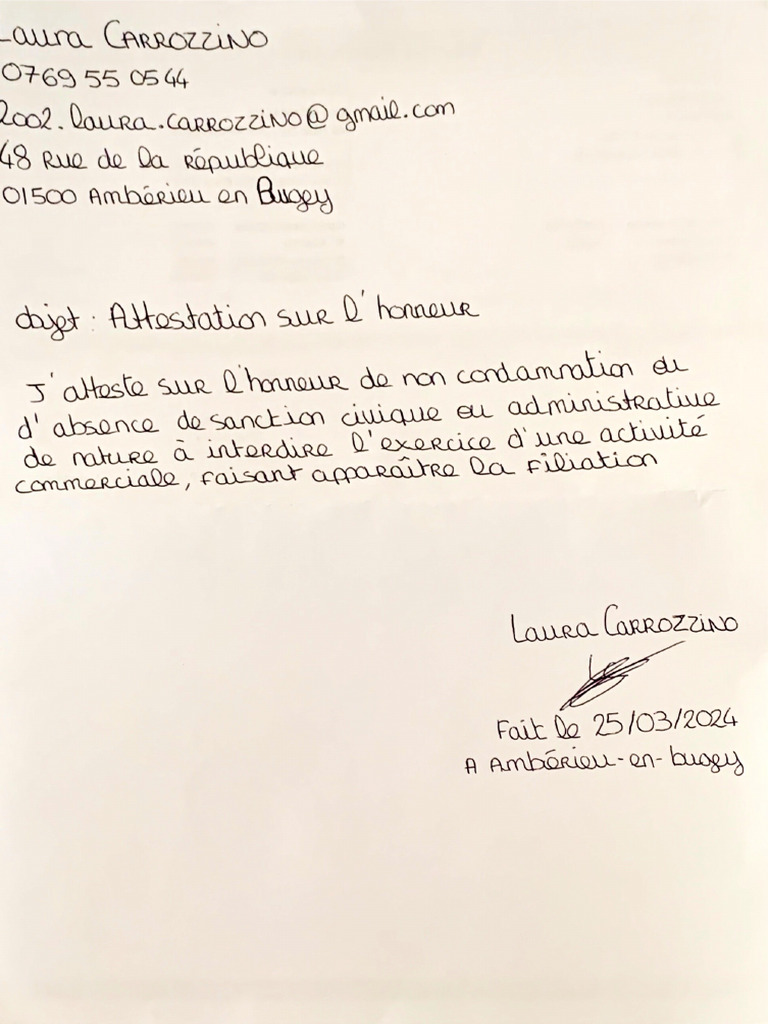 Laura CARROZZINO
0769 55 05 44
2002.laura.carrozzino@gmail.com
48 Rue de la république
01500 Ambérieu en Bugey
objet : Attestation sur l'honneur
J'atteste sur l'honneur de non condamnation ou
d'absence de sanction civique ou administrative
de nature à interdire l'exercice d'une activité
commerciale, faisant apparaître la filiation
Laura CARROZZINO
Fait le 25/03/2024
A Ambérieu-en-bugey